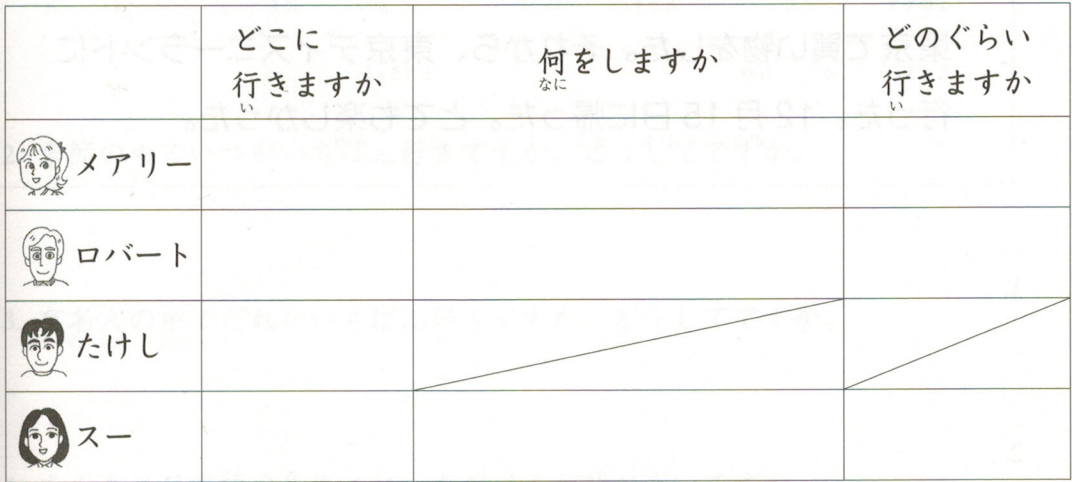 どこに
行きますか
い
何をしますか
なに
どのぐらい
行きますか
い
メアリー
ロバート
たけし
スー